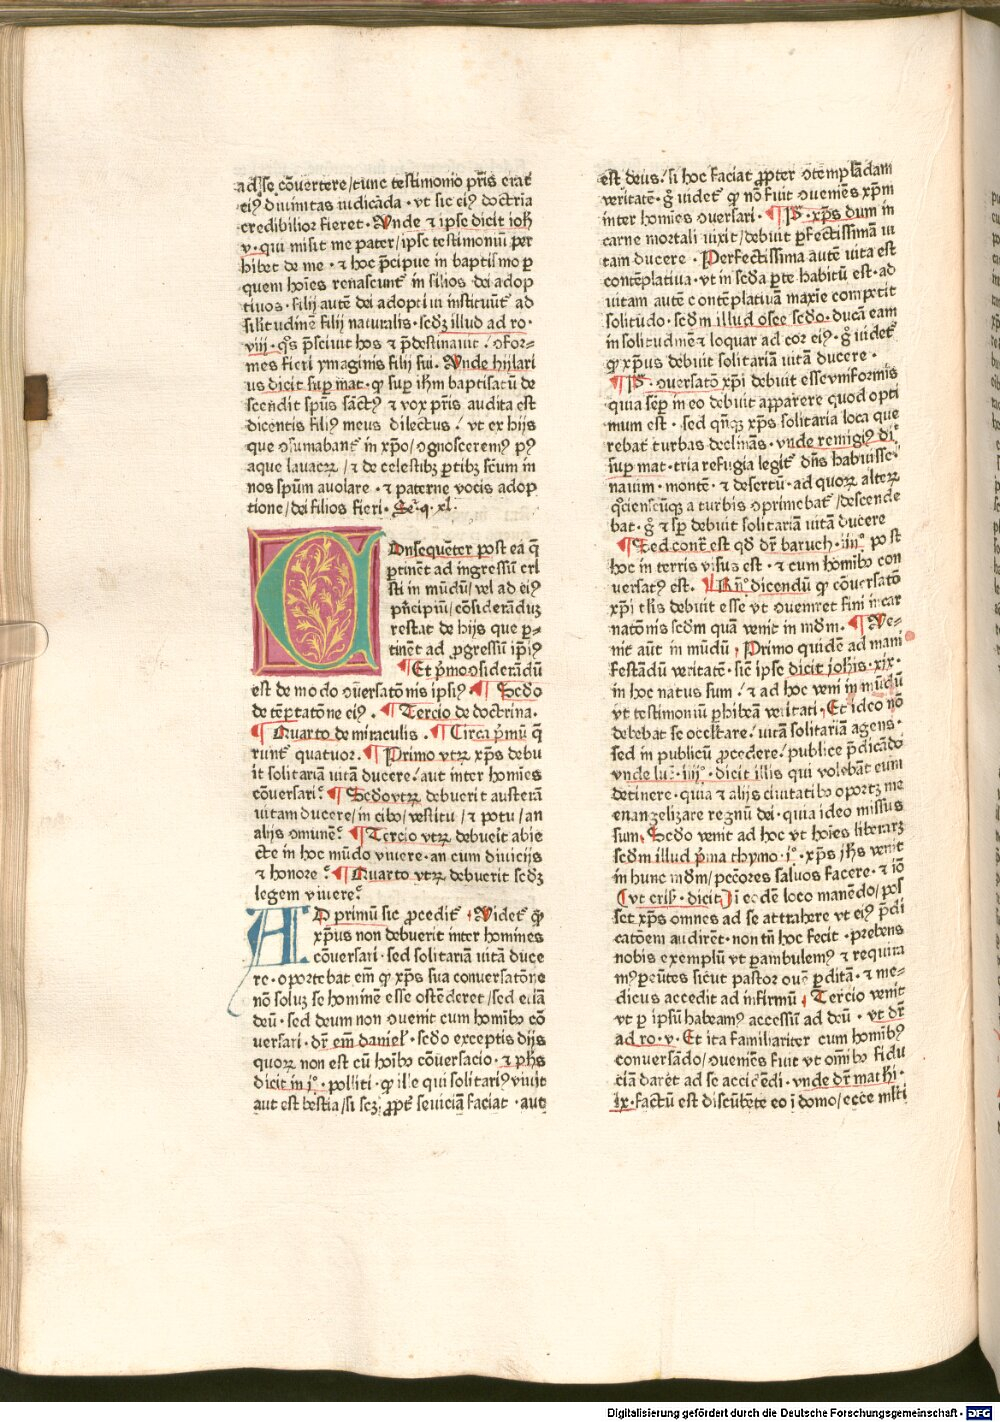 ad se cōuertere/tunc testimonio pr̄is erat
eiꝯ diuinitas iudicāda · vt sic eiꝯ doctrīa
credibilior fieret · Vnde ⁊ ipse dicit ioh̄
v · qui misit me pater/ipse testimoniū per
hibet de me · ⁊ hoc p̄cipue in baptismo ꝑ
quem hoīes renascunt̄ in filios dei adop
tiuos · filij autē dei adoptiui instituūt̄ ad
silitudinē filij naturalis · scd̄ȝ illud ad ro ·
viij · q̄s p̄sciuit hos ⁊ p̄destinauit · ꝯfor⸗
mes fieri ymaginis filij sui · Vnde hijlari
us dicit suꝑ mat · ꝙ suꝑ ih̄m baptisatū de
scendit spūs sāctꝯ ⁊ vox pr̄is audita est
dicentis filiꝯ meus dilectus / vt ex hijs
que ꝯsumabant̄ in xp̄o/ꝯgnosceremꝯ pꝯ
aque lauacꝝ / ⁊ de celestibꝫ ꝑtibꝫ sc̄um in
nos spūm auolare · ⁊ paterne vocis adop
tione/dei filios fieri · Se · q · xl ·
COnsequēter post ea q̄
ꝑtinēt ad ingressū cri
sti in mūdū/vel ad eiꝯ
pn̄cipiū/cōsiderādūȝ
restat de hijs que ꝑ⸗
tinēt ad ꝓgressū ip̄iꝯ
¶ Et pͥmo ꝯsiderādū
est de modo ꝯūersatōnis ipsiꝯ · ¶ Scd̄o
de tēptatōne eiꝯ · ¶ Tercio de doctrina ·
¶ Quarto de miraculis · ¶ Circa pͥmū q̄
runt̄ quatuor · ¶ Primo vtꝝ xp̄s debu
it solitariā uitā ducere/aut inter homīes
cōuersari? ¶ Scd̄o vtꝝ debuerit austerā
uitam ducere/in cibo/vestitu/⁊ potu/an
alijs ꝯmunē? ¶ Tercio vtꝝ debueīt abie
cte in hoc mūdo viuere · an cum diuicijs
⁊ honore? ¶ Quarto vtꝝ debuerit scd̄ȝ
legem viuere?
AD primū sic ꝓcedit̄ · Videt̄ ꝙ
xp̄us non debuerit inter homines
cōuersari · sed solitariā uitā duce
re · oportebat em̄ ꝙ xp̄s sua conuersatōne
nō soluȝ se hominē esse ostēderet/sed etiā
deū · sed deum non ꝯuenit cum homībꝯ cō
uersari · dr̄ em̄ daniel · scd̄o exceptis dijs
quoꝝ non est cū hoībꝯ cōuersacio · ⁊ ph̄s
dicit in j° · polliti · ꝙ ille qui solitariꝯ viuit
aut est bestia/si scȝ ꝓpt̄ seuiciā faciat · aut
est deus / si hoc faciat ꝓpter ꝯtemplādam
veritatē · g̊ uidet̄ ꝙ nō fuit ꝯueniēs xp̄m
inter homīes ꝯuersari · ¶ P̄ · xp̄s dum in
carne mortali uixit/debuit ꝑfectissimā ui
tam ducere · Perfectissima autē uita est
contēplatiua · vt in scd̄a ꝑte habitū est · ad
uitam autē contēplatiuā maxīe competit
solitudo · scd̄m illud osee scd̄o · ducā eam
in solitudinē ⁊ loquar ad cor eiꝯ · g̊ uidet̄
ꝙ xp̄us debuit solitariā uitā ducere ·
¶ P̄ · ꝯuersatō xp̄i debuit esse vniformis
quia sēp in eo debuit apparere quod opti
mum est · sed qn̄qꝫ xp̄s solitaria loca que
rebat turbas declinās · vnde remigiꝯ di ·
suꝑ mat · tria refugia legit̄ dn̄s habuisse ·
nauim · montē · ⁊ desertū · ad quoꝝ alteꝝ
qͦcienscūqꝫ a turbis ꝯprimebat̄/descende
bat · g̊ ⁊ sꝑ debuit solitariā uitā ducere
¶ Sed cont̄ est qd̄ dr̄ baruch · iij° post
hoc in terris visus est · ⁊ cum homībꝯ con
uersatꝯ est · ¶ Rn̄° dicendū ꝙ cōuersatō
xp̄i tl̄is debuit esse vt ꝯueniret fini incar
natōnis scd̄m quā venit in mūdm · ¶ Ve⸗
nit aūt in mūdū · Primo quidē ad mani
festādū veritatē · sic̄ ipse dicit joh̄is · xix ·
in hoc natus sum / ⁊ ad hoc veni in mūdū
vt testimoniū ꝑhibeā veritati · Et ideo nō
debebat se occltare / uitā solitariā agens ·
sed in publicū ꝓcedere / publice p̄dicādo
vnde luc̄ · iiij° · dicit illis qui volebāt eum
detinere · quia ⁊ alijs ciuitatibꝯ oportȝ me
euangelizare regnū dei · quia ideo missus
sum · Scd̄o venit ad hoc vt hoīes liberaꝫ
scd̄m illud pͥma thymo · i° · xp̄s ih̄s venit
in hunc mūdm/peccōres saluos facere · ⁊ iō
(vt cris̄ · dicit) ī eodē loco manēdo/pos
set xp̄s omnes ad se attrahere vt eiꝯ p̄di
catōem audirēt · non tn̄ hoc fecit · prebens
nobis exemplū vt ꝑambulemꝯ ⁊ requira
mꝯ ꝑeūtes sicut pastor ouē ꝑditā · ⁊ me⸗
dicus accedit ad infirmū · Tercio venit
vt ꝑ ipsū habeamꝯ accessū ad deū · vt dr̄
ad ro · v · Et ita familiariter cum homībꝯ
conuersādo/ꝯueniēs fuit vt om̄ibꝯ fidu
ciā daret ad se accidēdi · vnde dr̄ mathi ·
ix · Factū est discūbēte eo ī domo/ecce ml̄ti
Digitalisierung gefördert durch die Deutsche Forschungsgemeinschaft - DFG